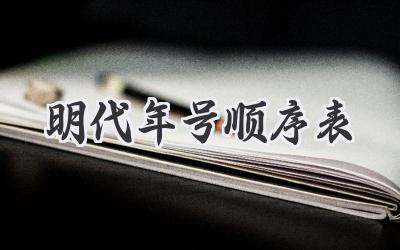 明代年号顺序表